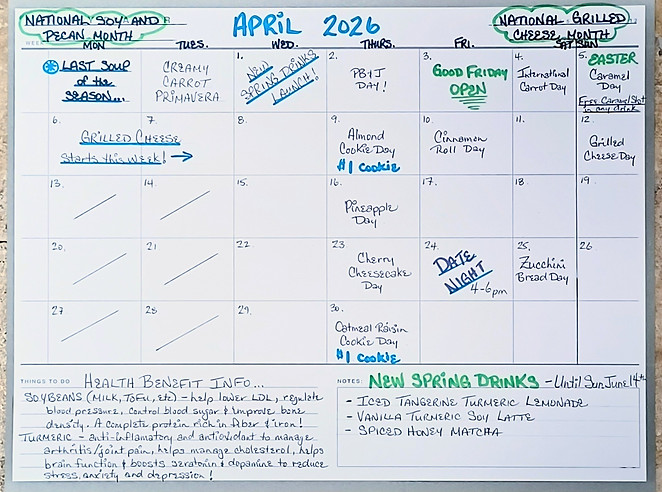 NATIONAL SOY AND
PECAN MONTH
APRIL 2026
NATIONAL GRILLED
CHEESE MONTH
MON TUES. WED. THURS. FRI. SAT/SUN
LAST SOUP
of the
SEASON...
CREAMY
CARROT
PRIMAVERA
1.
NEW
SPRING DRINKS
LAUNCH!
2.
PB+J
DAY!
3.
GOOD FRIDAY
OPEN
4.
International
Carrot Day
5.
EASTER
Caramel
Day
Free Caramel Shot
in any drink
6.
7.
GRILLED CHEESE
Starts this week!
8.
9.
Almond
Cookie Day
#1 Cookie
10.
Cinnamon
Roll Day
11.
12.
Grilled
Cheese Day
13.
14.
15.
16.
Pineapple
Day
17.
18.
19.
20.
21.
22.
23.
Cherry
Cheesecake
Day
24.
DATE
NIGHT
4-6pm
25.
Zucchini
Bread Day
26
27
28
29.
30.
Oatmeal Raisin
Cookie Day
#1 Cookie
THINGS TO DO
HEALTH BENEFIT INFO...
SOYBEANS (MILK, TOFU, ETC) - help lower LDL, regulate
blood pressure, control blood sugar & improve bone
density. A complete protein rich in fiber & iron!
TURMERIC - anti-inflamatory and antioxidant to manage
arthritis/joint pain, helps manage cholesterol, helps
brain function & boosts seratonin & dopamine to reduce
stress, anxiety and depression!
NOTES:
NEW SPRING DRINKS - Until Sun, June 14th
- ICED TANGERINE TURMERIC LEMONADE
- VANILLA TURMERIC SOY LATTE
- SPICED HONEY MATCHA